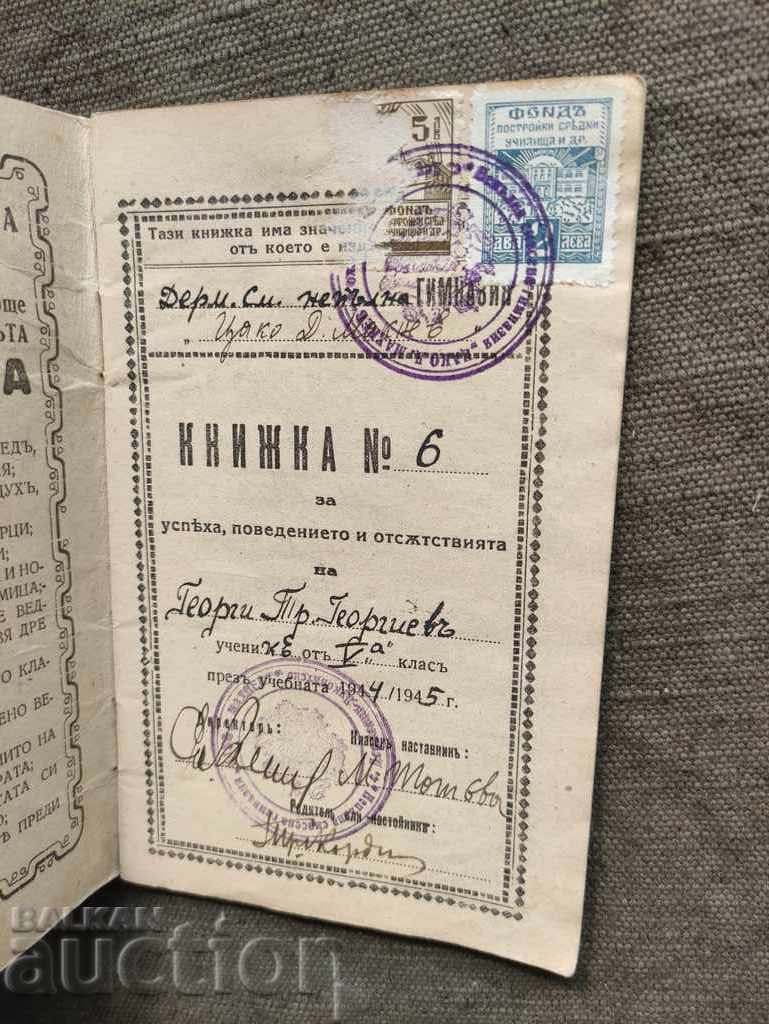 А
още
ЪТА
А
ЕДЪ,
Я;
ДУХЪ,
РЦИ;
И;
И НО-
МИЦА;-
Е ВЕД-
ВЯ ДРЕ
О КЛА-
ЕНО ВЕ-
ЧИТО НА
РАТА;
САТА СИ
О;
Ъ ПРЕДИ
5 ЛВ
ФОНДЪ
ФОНДЪ
ПОСТРОЙКИ СРѢДНИ
УЧИЛИЩА И ДР.
ДВА ЛЕВА
Тази книжка има значени
отъ което е изд
Держ. См. непълна ГИМНАЗИЯ
„Цяко Д.
КНИЖКА № 6
за
успѣха, поведението и отсѫтствията
на
Георги Тр. Георгиевъ
учени къ отъ V „а“ класъ
презъ учебната 1944/1945 г.
Директоръ: Класенъ наставникъ:
М. Тотева
Родитель или настойникъ:
BALKAN
auction